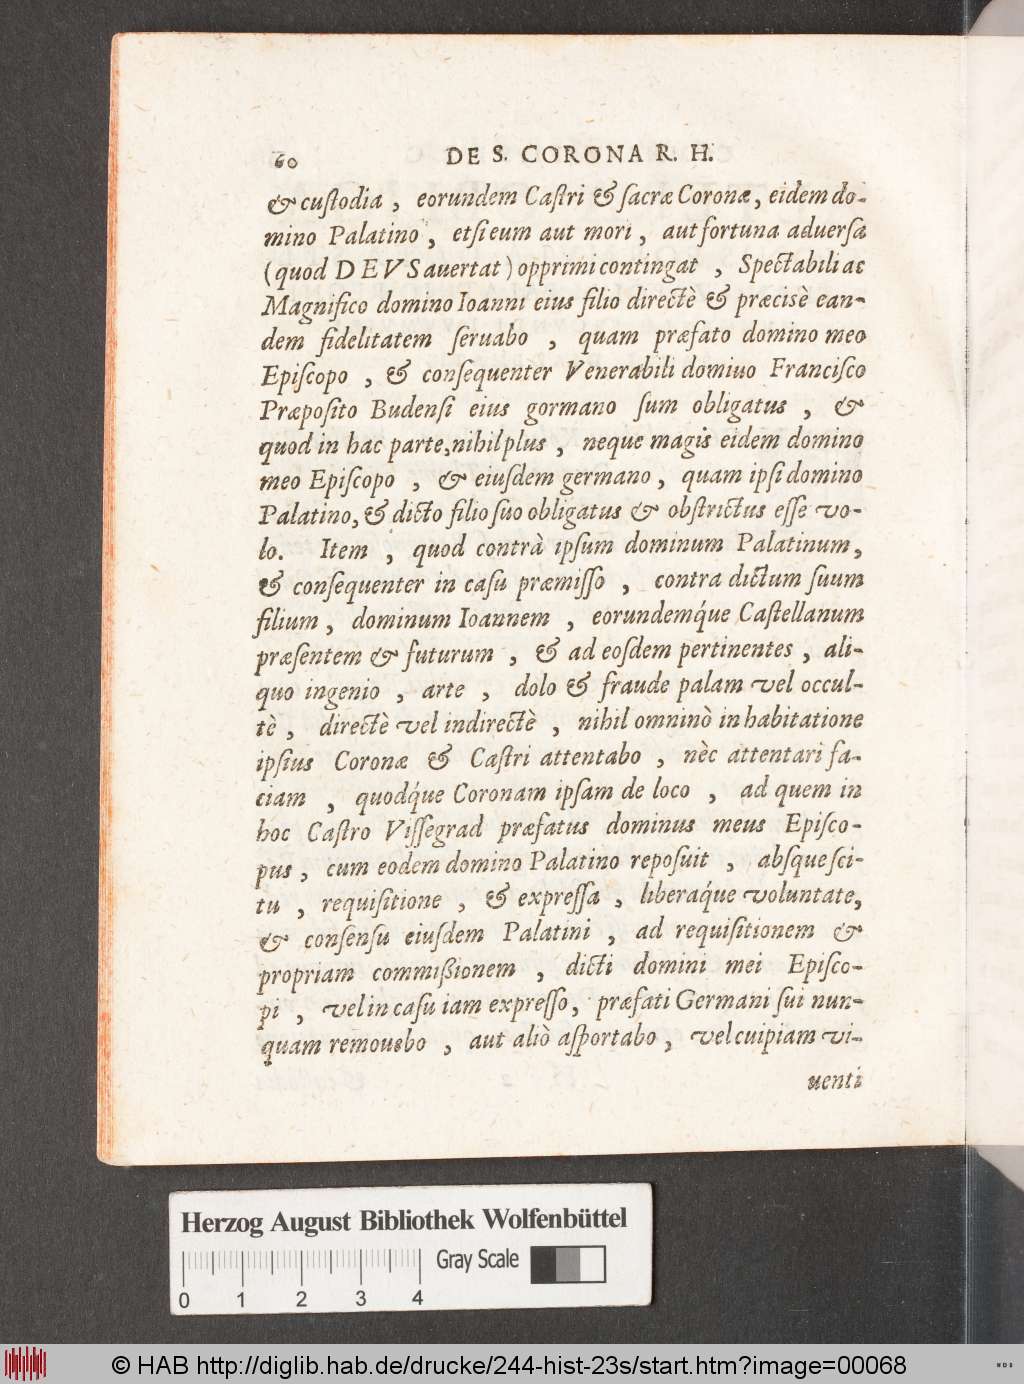 60 DE S. CORONA R. H.
& cuſtodia , eorundem Caſtri & ſacræ Coronæ, eidem do-
mino Palatino , etſi eum aut mori , aut fortuna aduerſa
(quod DEVS auertat) opprimi contingat , Spectabili ac
Magnifico domino Ioanni eius filio directè & præcisè ean-
dem fidelitatem ſeruabo , quam præfato domino meo
Epiſcopo , & conſequenter Venerabili domiuo Franciſco
Præpoſito Budenſi eius gormano ſum obligatus , &
quod in hac parte, nihil plus , neque magis eidem domino
meo Epiſcopo , & eiuſdem germano , quam ipſi domino
Palatino, & dicto filio ſuo obligatus & obſtrictus eſſe vo-
lo. Item , quod contrà ipſum dominum Palatinum,
& conſequenter in caſu præmiſſo , contra dictum ſuum
filium , dominum Ioannem , eorundemq́ue Caſtellanum
præſentem & futurum , & ad eoſdem pertinentes , ali-
quo ingenio , arte , dolo & fraude palam vel occul-
tè , directè vel indirectè , nihil omninò in habitatione
ipſius Coronæ & Caſtri attentabo , nèc attentari fa-
ciam , quodq́ue Coronam ipſam de loco , ad quem in
hoc Caſtro Viſſegrad præfatus dominus meus Epiſco-
pus , cum eodem domino Palatino repoſuit , abſque ſci-
tu , requiſitione , & expreſſa , liberaq́ue voluntate,
& conſenſu eiuſdem Palatini , ad requiſitionem &
propriam commißionem , dicti domini mei Epiſco-
pi , vel in caſu iam expreſſo, præfati Germani ſui nun-
quam remouebo , aut aliò aſportabo , vel cuipiam vi-
uenti
Herzog August Bibliothek Wolfenbüttel
Gray Scale
0 1 2 3 4
© HAB http://diglib.hab.de/drucke/244-hist-23s/start.htm?image=00068